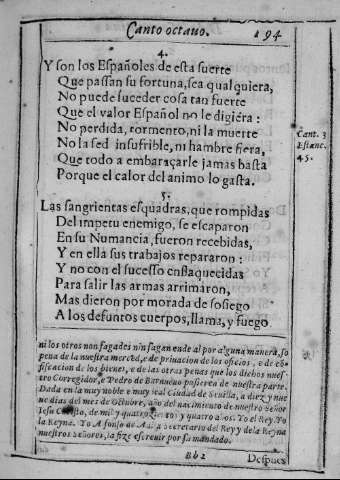 Canto octauo. 194
4.
Y son los Españoles de esta suerte
Que passan su fortuna, sea qualquiera,
No puede suceder cosa tan fuerte
Que el valor Español no le digiera:
No perdida, tormento, ni la muerte
No la sed insufrible, ni hambre fiera,
Que todo a embaraçarle jamas basta
Porque el calor del animo lo gasta.
Cant. 3
Estanc.
45.
5.
Las sangrientas esquadras, que rompidas
Del impetu enemigo, se escaparon
En su Numancia, fueron recebidas,
Y en ella sus trabajos repararon:
Y no con el sucesso enflaquecidas
Para salir las armas arrimaron,
Mas dieron por morada de sosiego
A los defuntos cuerpos, llama, y fuego
ni los otros non fagades nin fagan ende al por alguna manera, so
pena de la nuestra merced, e de priuacion de los oficios, e de cõ-
fiscacion de los bienes, e de las otras penas que los dichos nues-
tro Corregidor, e Pedro de Barnueuo pusieren de nuestra parte.
Dada en la muy noble e muy leal Ciudad de Seuilla, a diez y nue
ue dias del mes de Octubre, año del nacimiento de nuestro Señor
Iesu Christo, de mil y quatrocientos y quatro años. Yo el Rey. Yo
la Reyna. Yo Alonso de Secretario del Rey y de la Reyna
nuestros Señores, la fize escreuir por su mandado.
Bb 2 Despues